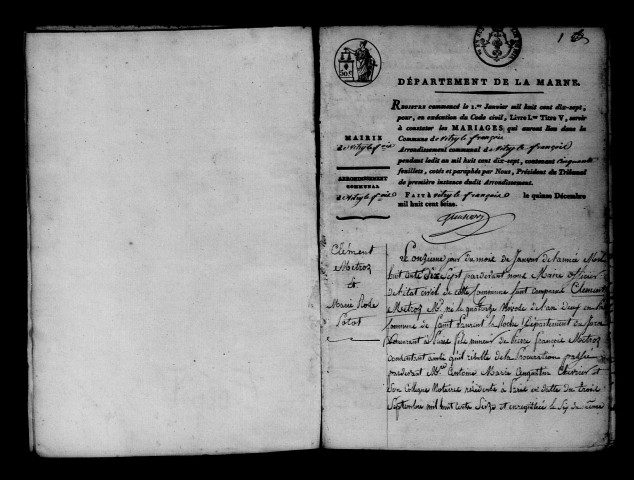 1
DÉPARTEMENT DE LA MARNE.
REGISTRE commencé le 1.er Janvier mil huit cent dix-sept,
pour, en exécution du Code civil, Livre I.er Titre V, servir
à constater les MARIAGES, qui auront lieu dans la
Commune de Vitry le françois
Arrondissement communal de Vitry le françois
pendant ledit an mil huit cent dix-sept, contenant cinquante
feuillets, cotés et paraphés par Nous, Président du Tribunal
de première instance dudit Arrondissement.
FAIT à Vitry le françois le quinze Décembre
mil huit cent seize.
MAIRIE
de Vitry le f.ois
ARRONDISSEMENT
COMMUNAL
de Vitry le f.ois
Clément
Metroz
&
Marie Rose
L'onzieme jour du mois de Janvier de l'année Mil
huit cent Dix sept pardevant nous Maire officier
de l'état civil de cette Commune sont comparus Clement
Metroz né le quatorze Nivose de l'an
Commune de Saint Laurent la Roche Département du Jura
demeurant à fils mineur de Pierre françois Metroz
consentant ainsi qu'il résulte de la Procuration passée
pardevant M.e Antoine Marie Augustin et
Son Collegue Notaires résidents à en datte du trois
Septembre mil huit cent Seize et enregistrée le Six du même